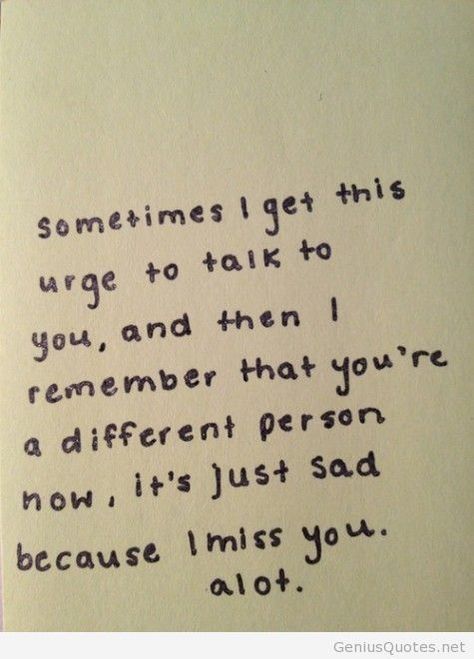 sometimes I get this
urge to talk to
you, and then I
remember that you're
a different person
now, it's just sad
because I miss you.
alot.
GeniusQuotes.net